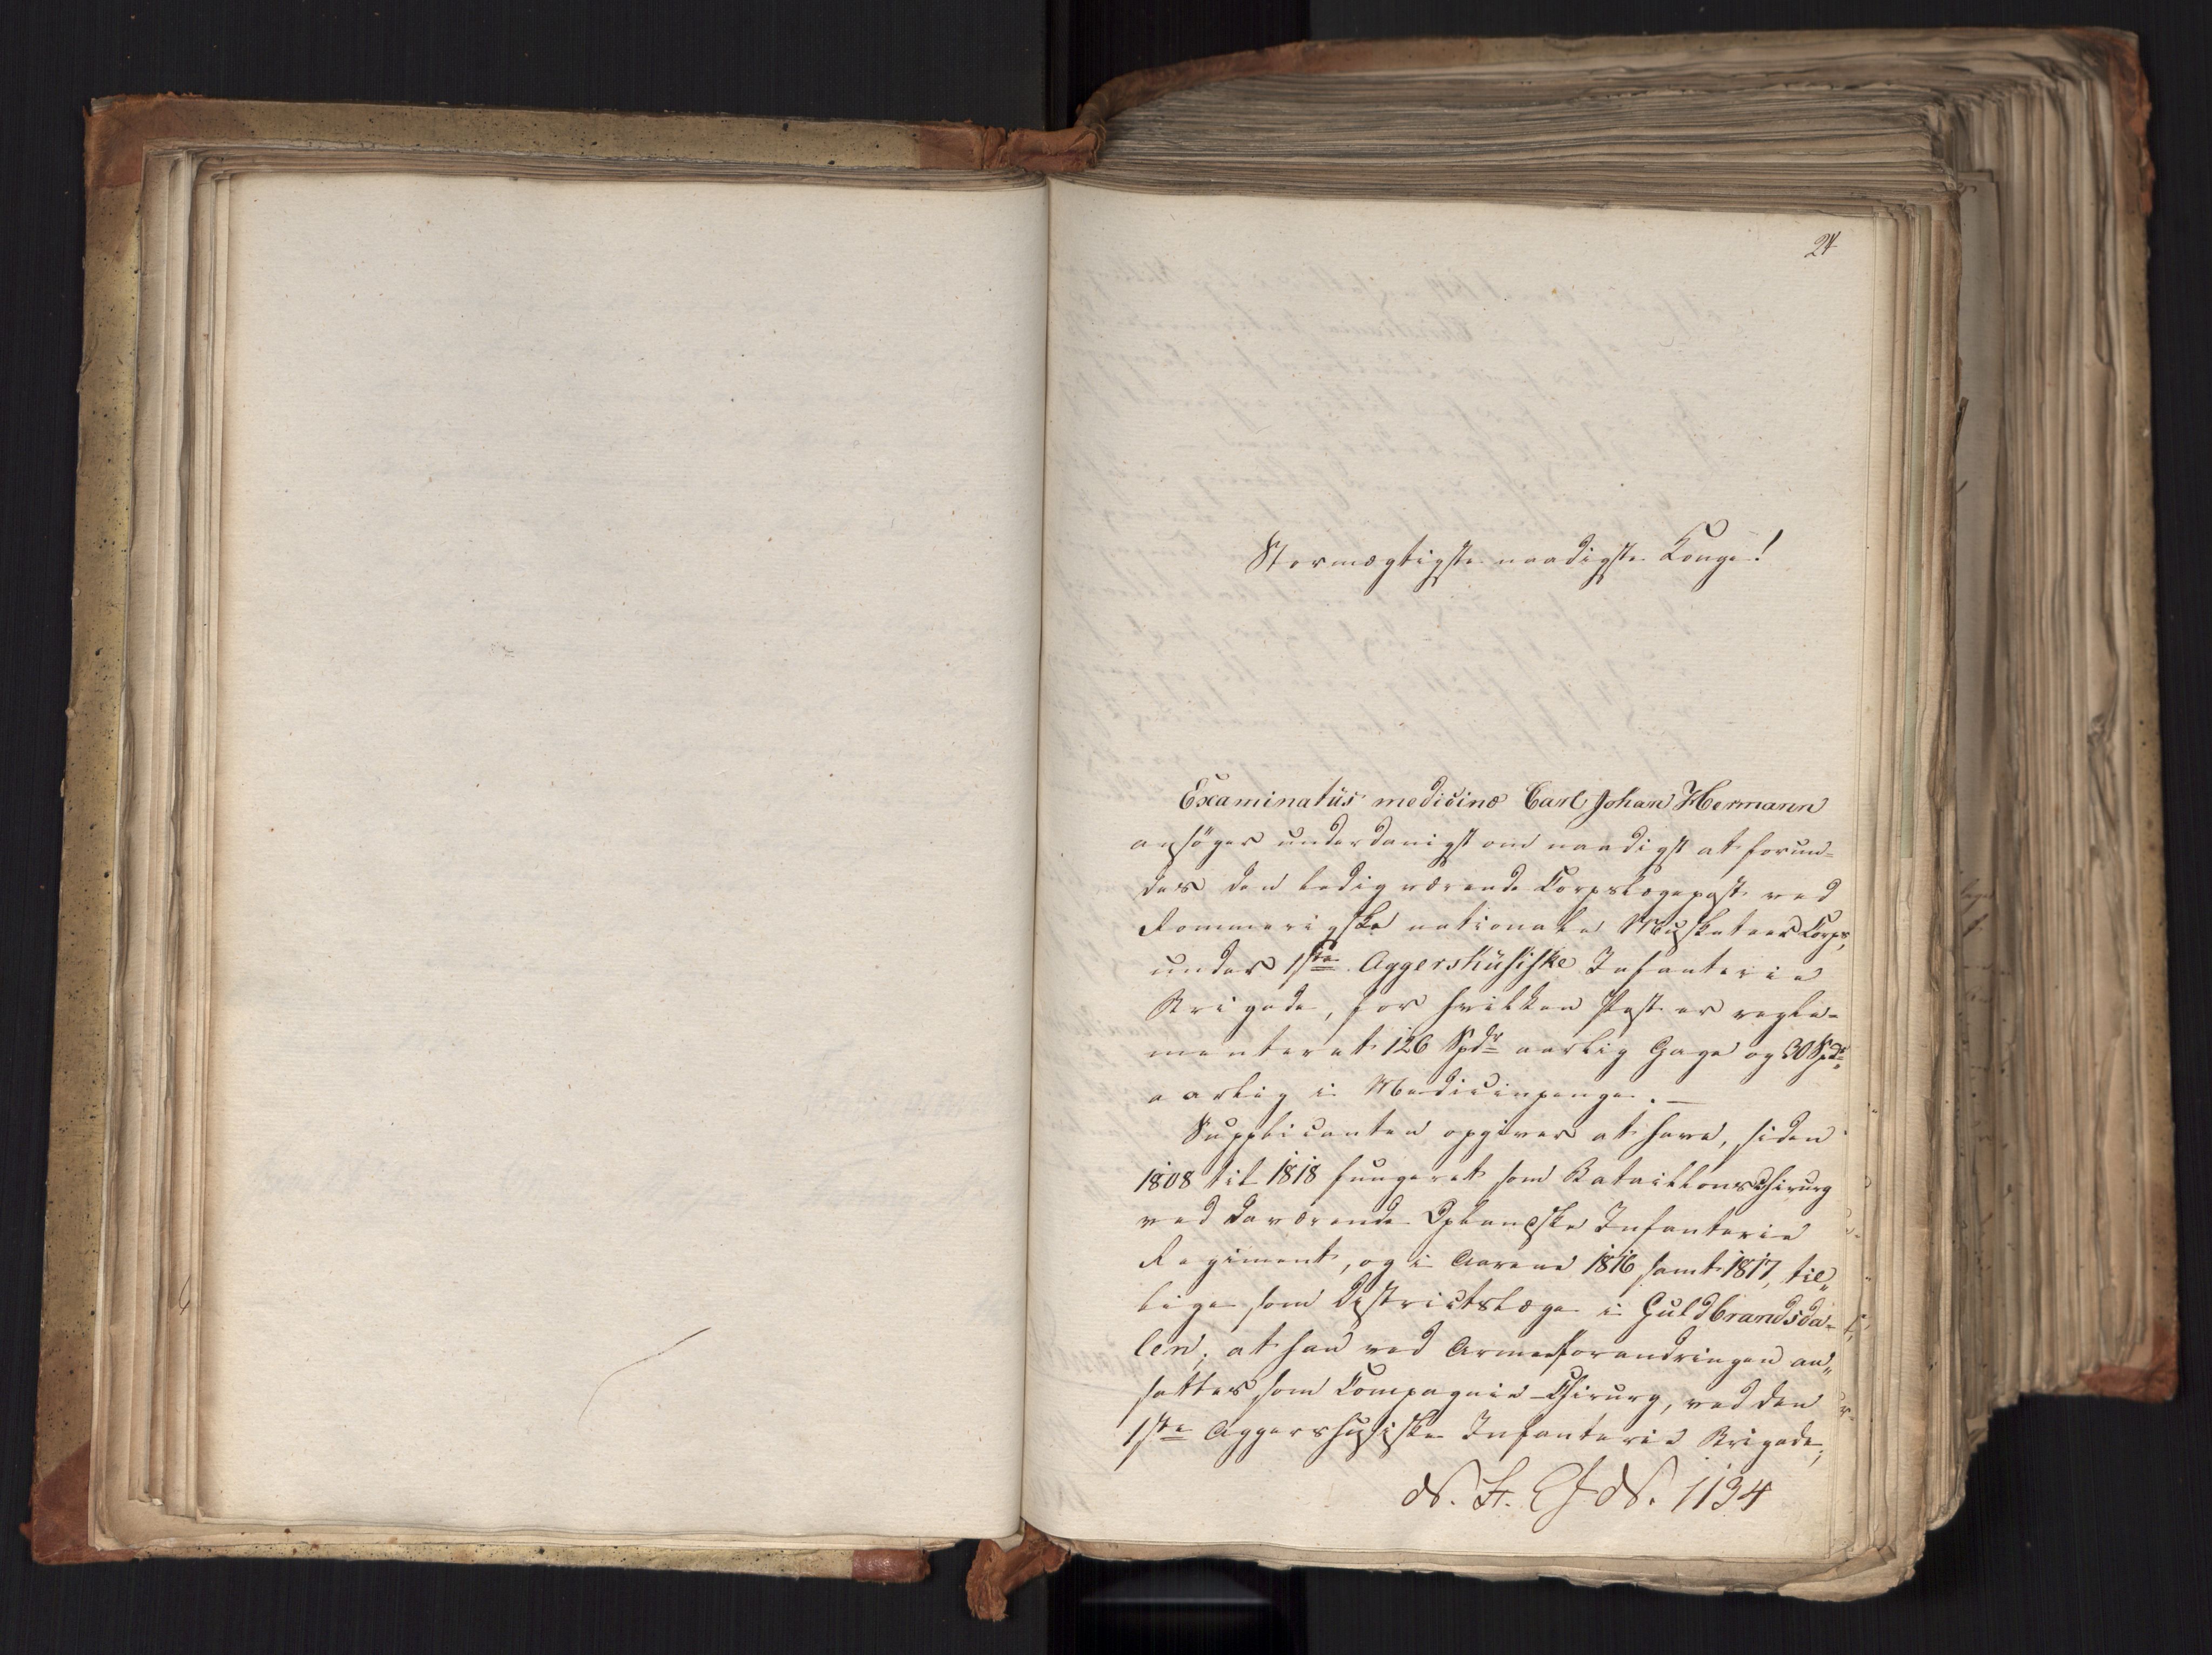 24
Stormægtigste naadigste Konge!
Examinatus medicinæ Carl Johan Hermann
ansøger underdanigst om naadigst at forun-
des den ledig værende Corpslægepost ved
Rommerigske nationale Musketeer Corps,
under 1ste Aggershusiske Infanterie
Brigade, for hvilken Post er regle-
menteret 126 Spdr aarlig Gage og 30 Spdr
aarlig i Medicinpenge. —
Supplicanten opgiver at have, siden
1808 til 1818 fungeret som Bataillonschirurg
ved daværende Oplandske Infanterie
Regiment, og i Aarene 1816 samt 1817, til„
lige som Districtslæge i Guldbrandsda-
len; at han ved Armeeforandringen an„
sattes som Compagnie-Chirurg, ved den
1ste Aggershusiske Infanterie Brigade;
1194